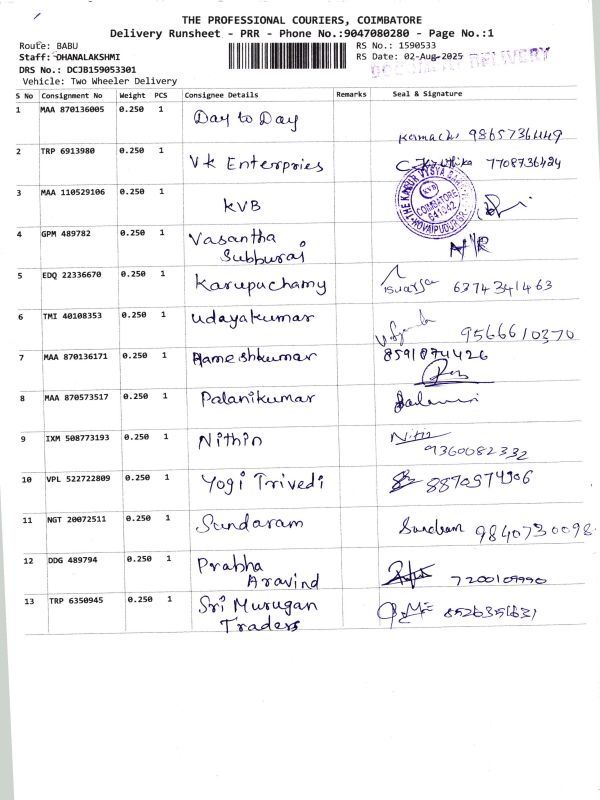 THE PROFESSIONAL COURIERS, COIMBATORE
Delivery Runsheet - PRR - Phone No.:9047080280 - Page No.:1
Route: BABU
RS No.: 1590533
Staff: DHANALAKSHMI
RS Date: 02-Aug-2025
DRS No.: DCJB159053301
DELIVERY
Vehicle: Two Wheeler Delivery
S No Consignment No Weight PCS Consignee Details Remarks Seal & Signature
1 MAA 870136005 0.250 1 Day to Day
Kamachi 9865736449
2 TRP 6913980 0.250 1 Vk Enterpries 7708736484
3 MAA 110529106 0.250 1 KVB
THE KARUR VYSYA BANK
KVB
COIMBATORE
641042
KOVAIPUDUR BR.
4 GPM 489782 0.250 1 Vasantha
Subburaj
5 EDQ 22336670 0.250 1 Karupuchamy 6374341463
6 TMI 40108353 0.250 1 Udayakumar 9566610370
7 MAA 870136171 0.250 1 Rameshkumar 8591874426
8 MAA 870573517 0.250 1 Palanikumar
9 IXM 508773193 0.250 1 Nithin
9360082332
10 VPL 522722809 0.250 1 Yogi Trivedi 8870974906
11 NGT 20072511 0.250 1 Sundaram 9840730098
12 DDG 489794 0.250 1 Prabha
Aravind 7200109990
13 TRP 6350945 0.250 1 Sri Murugan
Traders